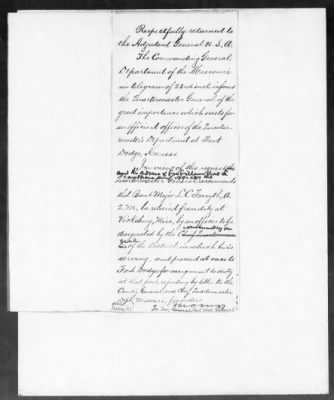 Respectfully returned to
the Adjutant General U.S.A.
The Commanding General
Department of the Missouri
in telegram of 22nd inst. informs
the Quartermaster General of the
great importance which exists for
an efficient officer of the Quarter-
master's Department at Fort
Dodge, Kansas.
In view of this request the
and the
Quartermaster General recommends
that Brevet Major L. C. Forsyth, A.
Q. M., be relieved from duty at
Vicksburg, Miss, by an officer to be
designated by the Chief Quartermaster
of the District in which he is
serving, and proceed at once to
Fort Dodge for assignment to duty
at that post, reporting by letter to the
Comd'g General and Chief Quartermaster
Dept. Missouri, for orders